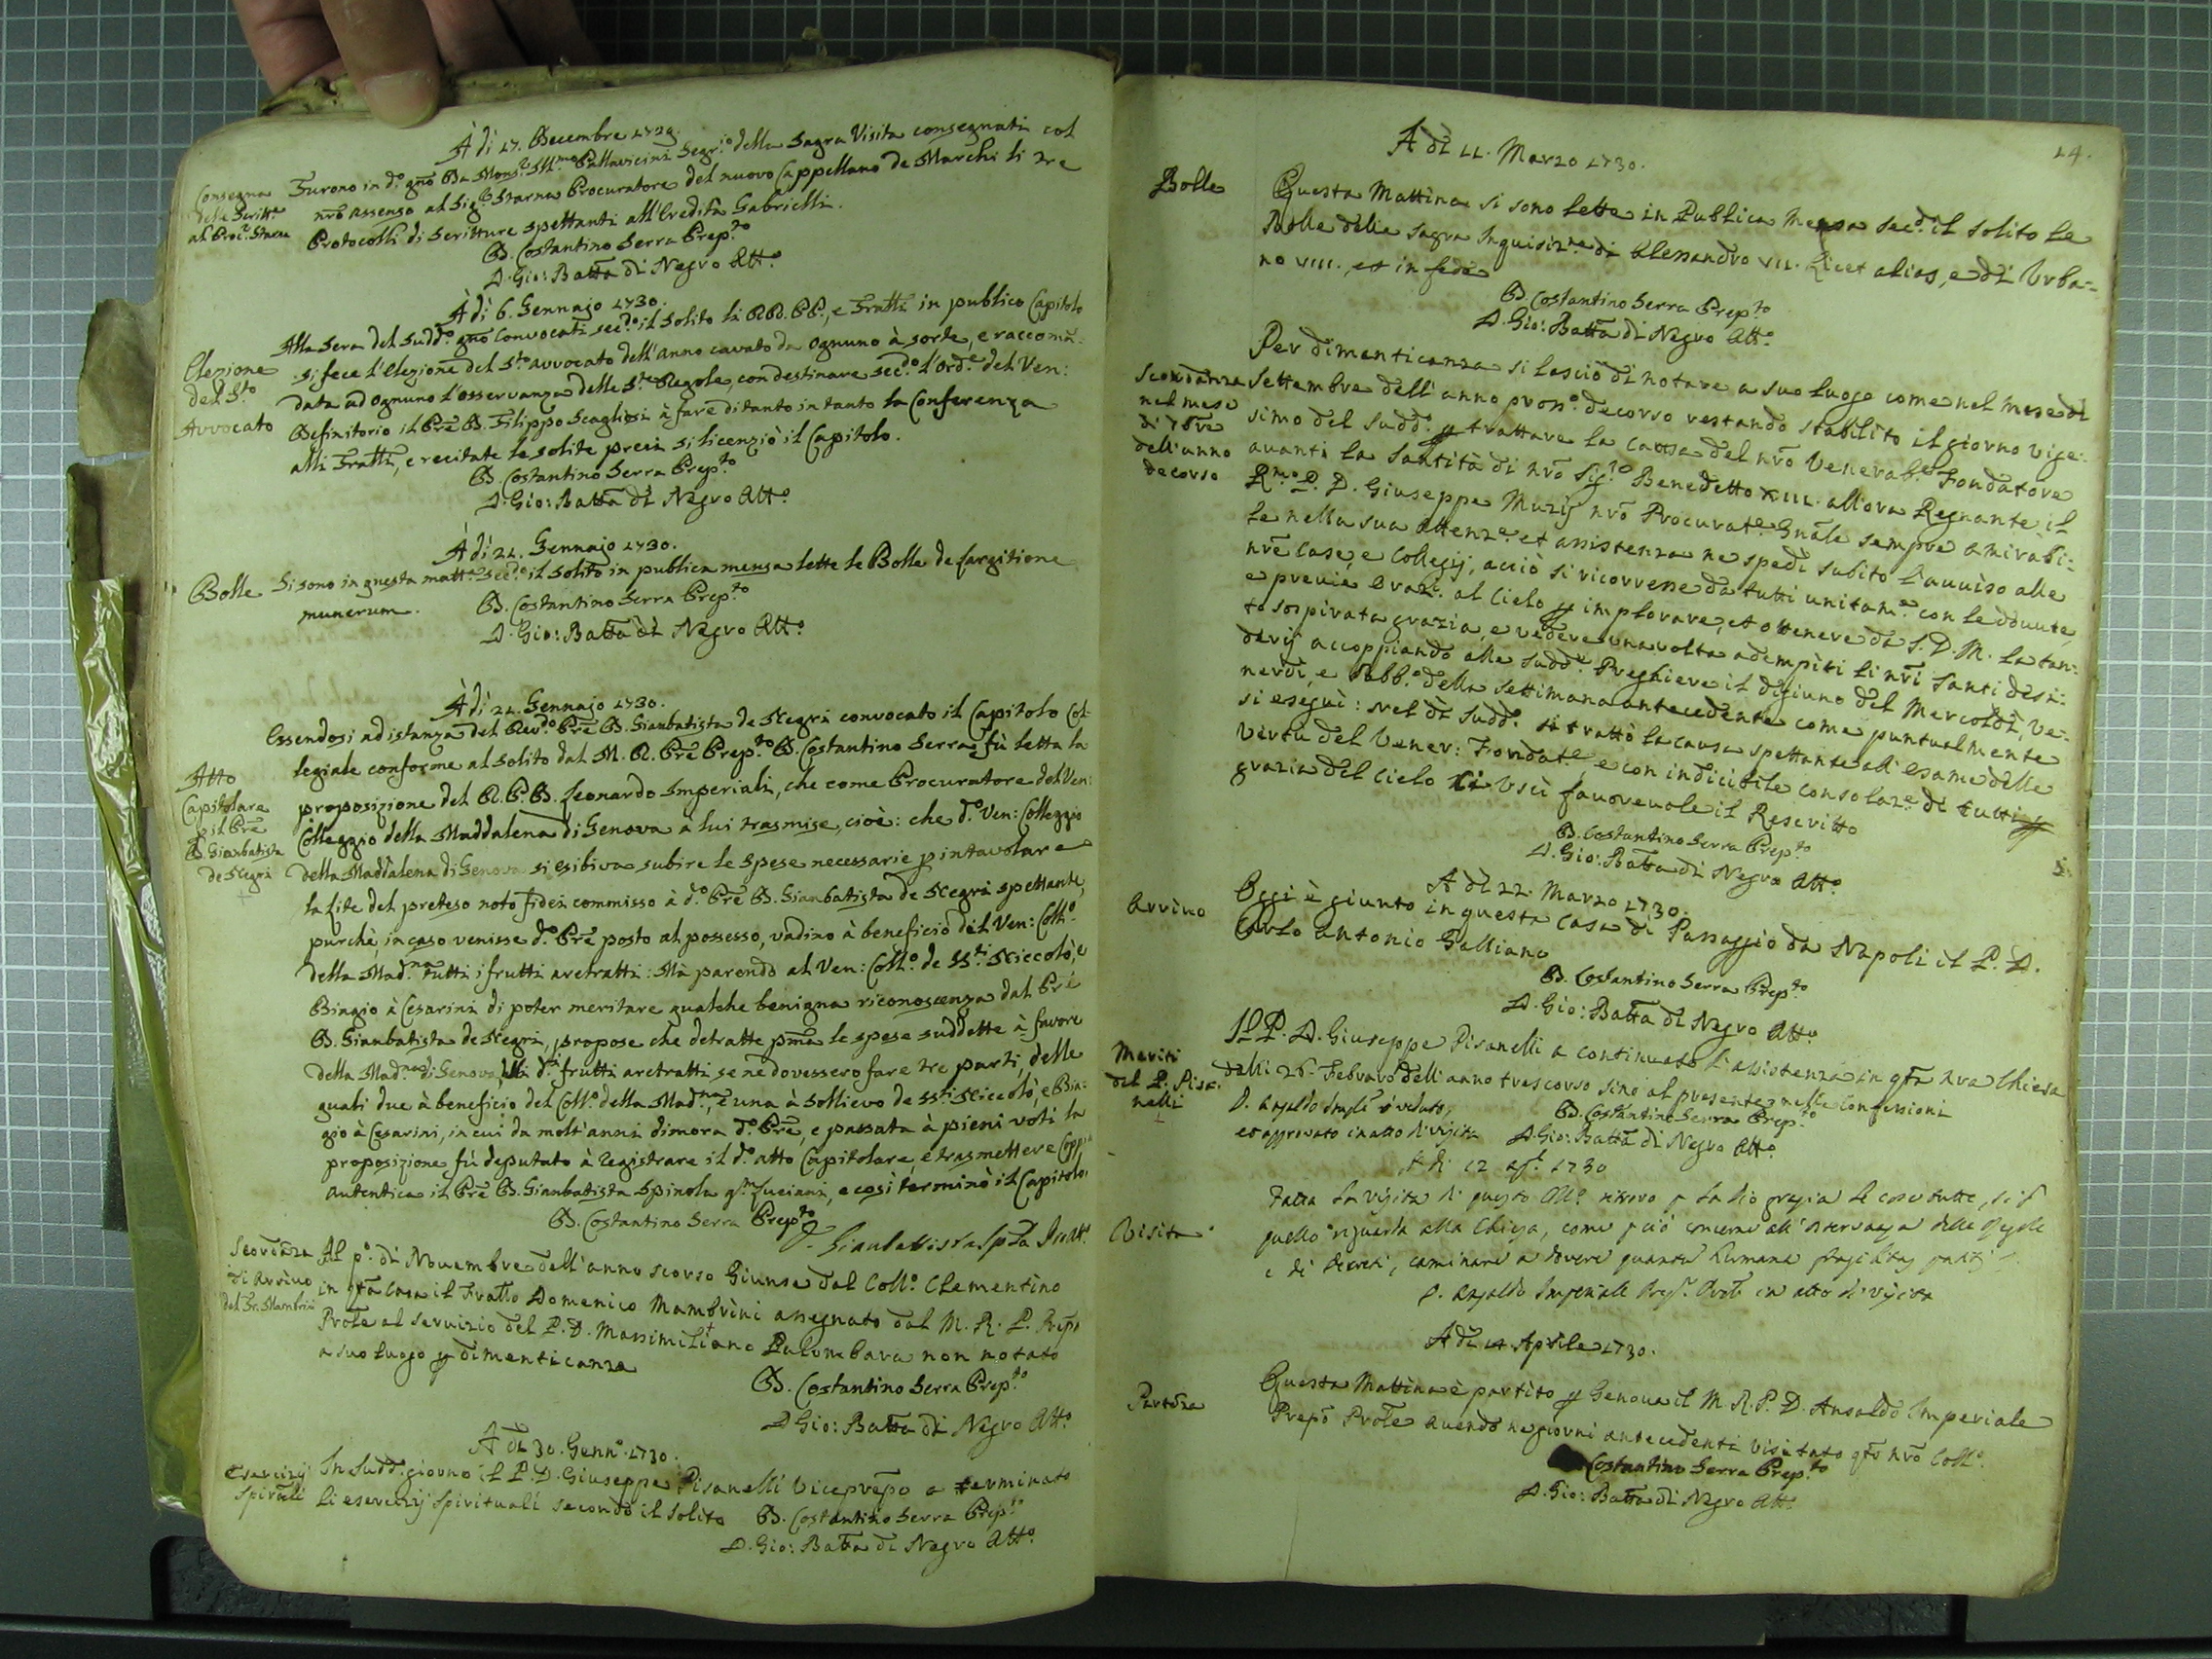 À dì 17. Decembre 1729.
Consegna
delle Scritt.e
al Proc.r Starna
Furono in d.o gno Da Mons.r Ill.mo Pallavicini Segr.o della Sagra Visita consegnati col
nro assenso al Sig.r Starna Procuratore del nuovo Cappellano de Marchi li tre
Protocolli di Scritture spettanti all'Eredità Gabrielli.
D. Costantino Serra Prep.to
D. Gio: Batta di Negro Att.o
À dì 6. Gennajo 1730.
Elezione
del S.to
Avvocato
Alla sera del Sudd.o gno Convocati sec.do il solito li RR. PP., e Fratti in publico Capitolo
si fece l'Elezione del S.to Avvocato dell'anno cavato da ognuno à sorte, e raccomm-
data ad ognuno l'osservanza delle S.te Regole, con destinare sec.do l'Ord.e del Ven:
Definitorio il Pre D. Filippo Scagliosi à fare di tanto in tanto la Conferenza
alli Fratti, e recitate le solite preci si licenziò il Capitolo.
D. Costantino Serra Prep.to
D. Gio: Batta di Negro Att.o
À dì 21. Gennajo 1730.
Bolle
Si sono in questa matt.a sec.do il solito in publica mensa lette le Bolle de largitione
munerum.
D. Costantino Serra Prep.to
D. Gio: Batta di Negro Att.o
À dì 22. Gennajo 1730.
Essendosi ad istanza del Rev.do Pre D. Gianbatista de Negri convocato il Capitolo Col-
legiale conforme al solito dal M. R. Pre Prep.to D. Costantino Serra, fù letta la
Atto
Capitolare
p il Pre
D. Gianbatista
de Negri
proposizione del R. P. D. Leonardo Imperiali, che come Procuratore del Ven:
Colleggio della Maddalena di Genova a lui trasmise, cioè: che d.o Ven: Colleggio
della Maddalena di Genova si esibiva subire le spese necessarie p intavolare
la lite del preteso noto fidei commisso à d.o Pre D. Gianbatista de Negri spettante,
purchè, in caso venisse d.o Pre posto al possesso, vadino à beneficio del Ven: Coll.o
della Mad.na tutti i frutti aretratti: Mà parendo al Ven: Coll.o de SS.ti Niccolò, e
Biagio à Cesarini di poter meritare qualche benigna riconoscenza dal Pre
D. Gianbatista de Negri, propose che detratte pma le spese suddette à favore
della Mad.na di Genova, dalli d.ti frutti aretratti se ne dovessero fare tre parti, delle
quali due à beneficio del Coll.o della Mad.na, e una à sollievo de SS.ti Niccolò, e Bia-
gio à Cesarini, in cui da molt'anni dimora d.o Pre, e passata à pieni voti la
proposizione fù deputato à Registrare il d.o atto Capitolare, e trasmettere Coppia
autentica il Pre D. Gianbatista Spinola q.m Luciani, e così terminò il Capitolo.
D. Costantino Serra Prep.to
Scordanza
di Arrivo
del Fr. Mambrini
Al p.o di Novembre dell'anno scorso Giunse dal Coll.o Clementino
in qta Casa il Fratto Domenico Mambrini assegnato dal M. R. P. Prep.o
Prole al servizio del P. D. Massimiliano Palombara non notato
a suo luogo p dimenticanza
D. Costantino Serra Prep.to
D. Gio: Batta di Negro Att.o
A dì 30. Genn.o 1730.
Esercizij
Spirituali
In Sudd.o giorno il P. D. Giuseppe Pisanelli Viceprepo a terminato
li esercizij Spirituali secondo il solito
D. Costantino Serra Prep.to
D. Gio: Batta di Negro Att.o
14.
A dì 11. Marzo 1730.
Bolle
Questa Mattina si sono lette in Publica Mensa sec.o il solito le
Bolle della Sagra Inquisiz.ne di Alessandro VII. Licet alias, e di Urba-
no VIII., et in fede
D. Costantino Serra Prep.to
D. Gio: Batta di Negro Att.o
Scordanza
nel mese
di 7bre
dell'anno
decorso
Per dimenticanza si lasciò di notare a suo luogo come nel mese di
Settembre dell'anno pros.o decorso restando stabilito il giorno vige-
simo del Sudd.o p trattare la Causa del nro Venerab.e Fondatore
avanti la Santità di nro Sig.re Benedetto XIII. allora Regnante il
R.mo P. D. Giuseppe Muzij nro Procurat.e Gnale sempre amirabi-
le nella sua attenz.e et assistenza ne spedì subito l'avviso alle
nre Case, e Collegij, acciò si ricorresse da tutti unitam.e con le dovute,
e previe Oraz.i al Cielo p implorare, et ottenere da S. D. M. la tan-
to sospirata grazia, e vedere una volta adempiti li nri Santi desi-
derij accoppiando alle Sudd.e Preghiere il digiuno del Mercoldì, Ve-
nerdì, e Sabb.o della Settimana antecedente come puntualmente
si eseguì: Nel dì Sudd.o si trattò la causa spettante all'esame delle
Virtù del Vener: Fondat.e, e con indicibile consolaz.e di tutti p
grazia del Cielo ci uscì favorevole il Rescritto
D. Costantino Serra Prep.to
D. Gio: Batta di Negro Att.o
A dì 22. Marzo 1730.
Arrivo
Oggi è giunto in questa Casa di Passaggio da Napoli il P. D.
Carlo Antonio Galliano
D. Costantino Serra Prep.to
D. Gio: Batta di Negro Att.o
Meriti
del P. Pisa-
nelli
Il P. D. Giuseppe Pisanelli a continuato l'assistenza in qta nra Chiesa
dalli 26. Febraro dell'anno trascorso sino al presente nelle Confessioni
D. Ansaldo Imple ò veduto,
et approvato in atto di visita
D. Costantino Serra Prep.to
D. Gio: Batta di Negro Att.o
A dì 12 ap.le 1730
Visita
Fatta la visita di questo Coll.o ritrovo p la Dio grazia le cose tutte, si p
quello riguarda alla Chiesa, come p ciò concerne all'osservanza delle Regole
e di Decreti, caminare a dovere quantum humana fragilitas patitur
D. Ansaldo Imperiale Prep.o Prole in atto di visita
A dì 14. Aprile 1730.
Partenza
Questa Mattina è partito p Genova il M. R. P. D. Ansaldo Imperiale
Prepo Prole avendo ne giorni antecedenti visitato qto nro Coll.o
Costantino Serra Prep.to
D. Gio: Batta di Negro Att.o